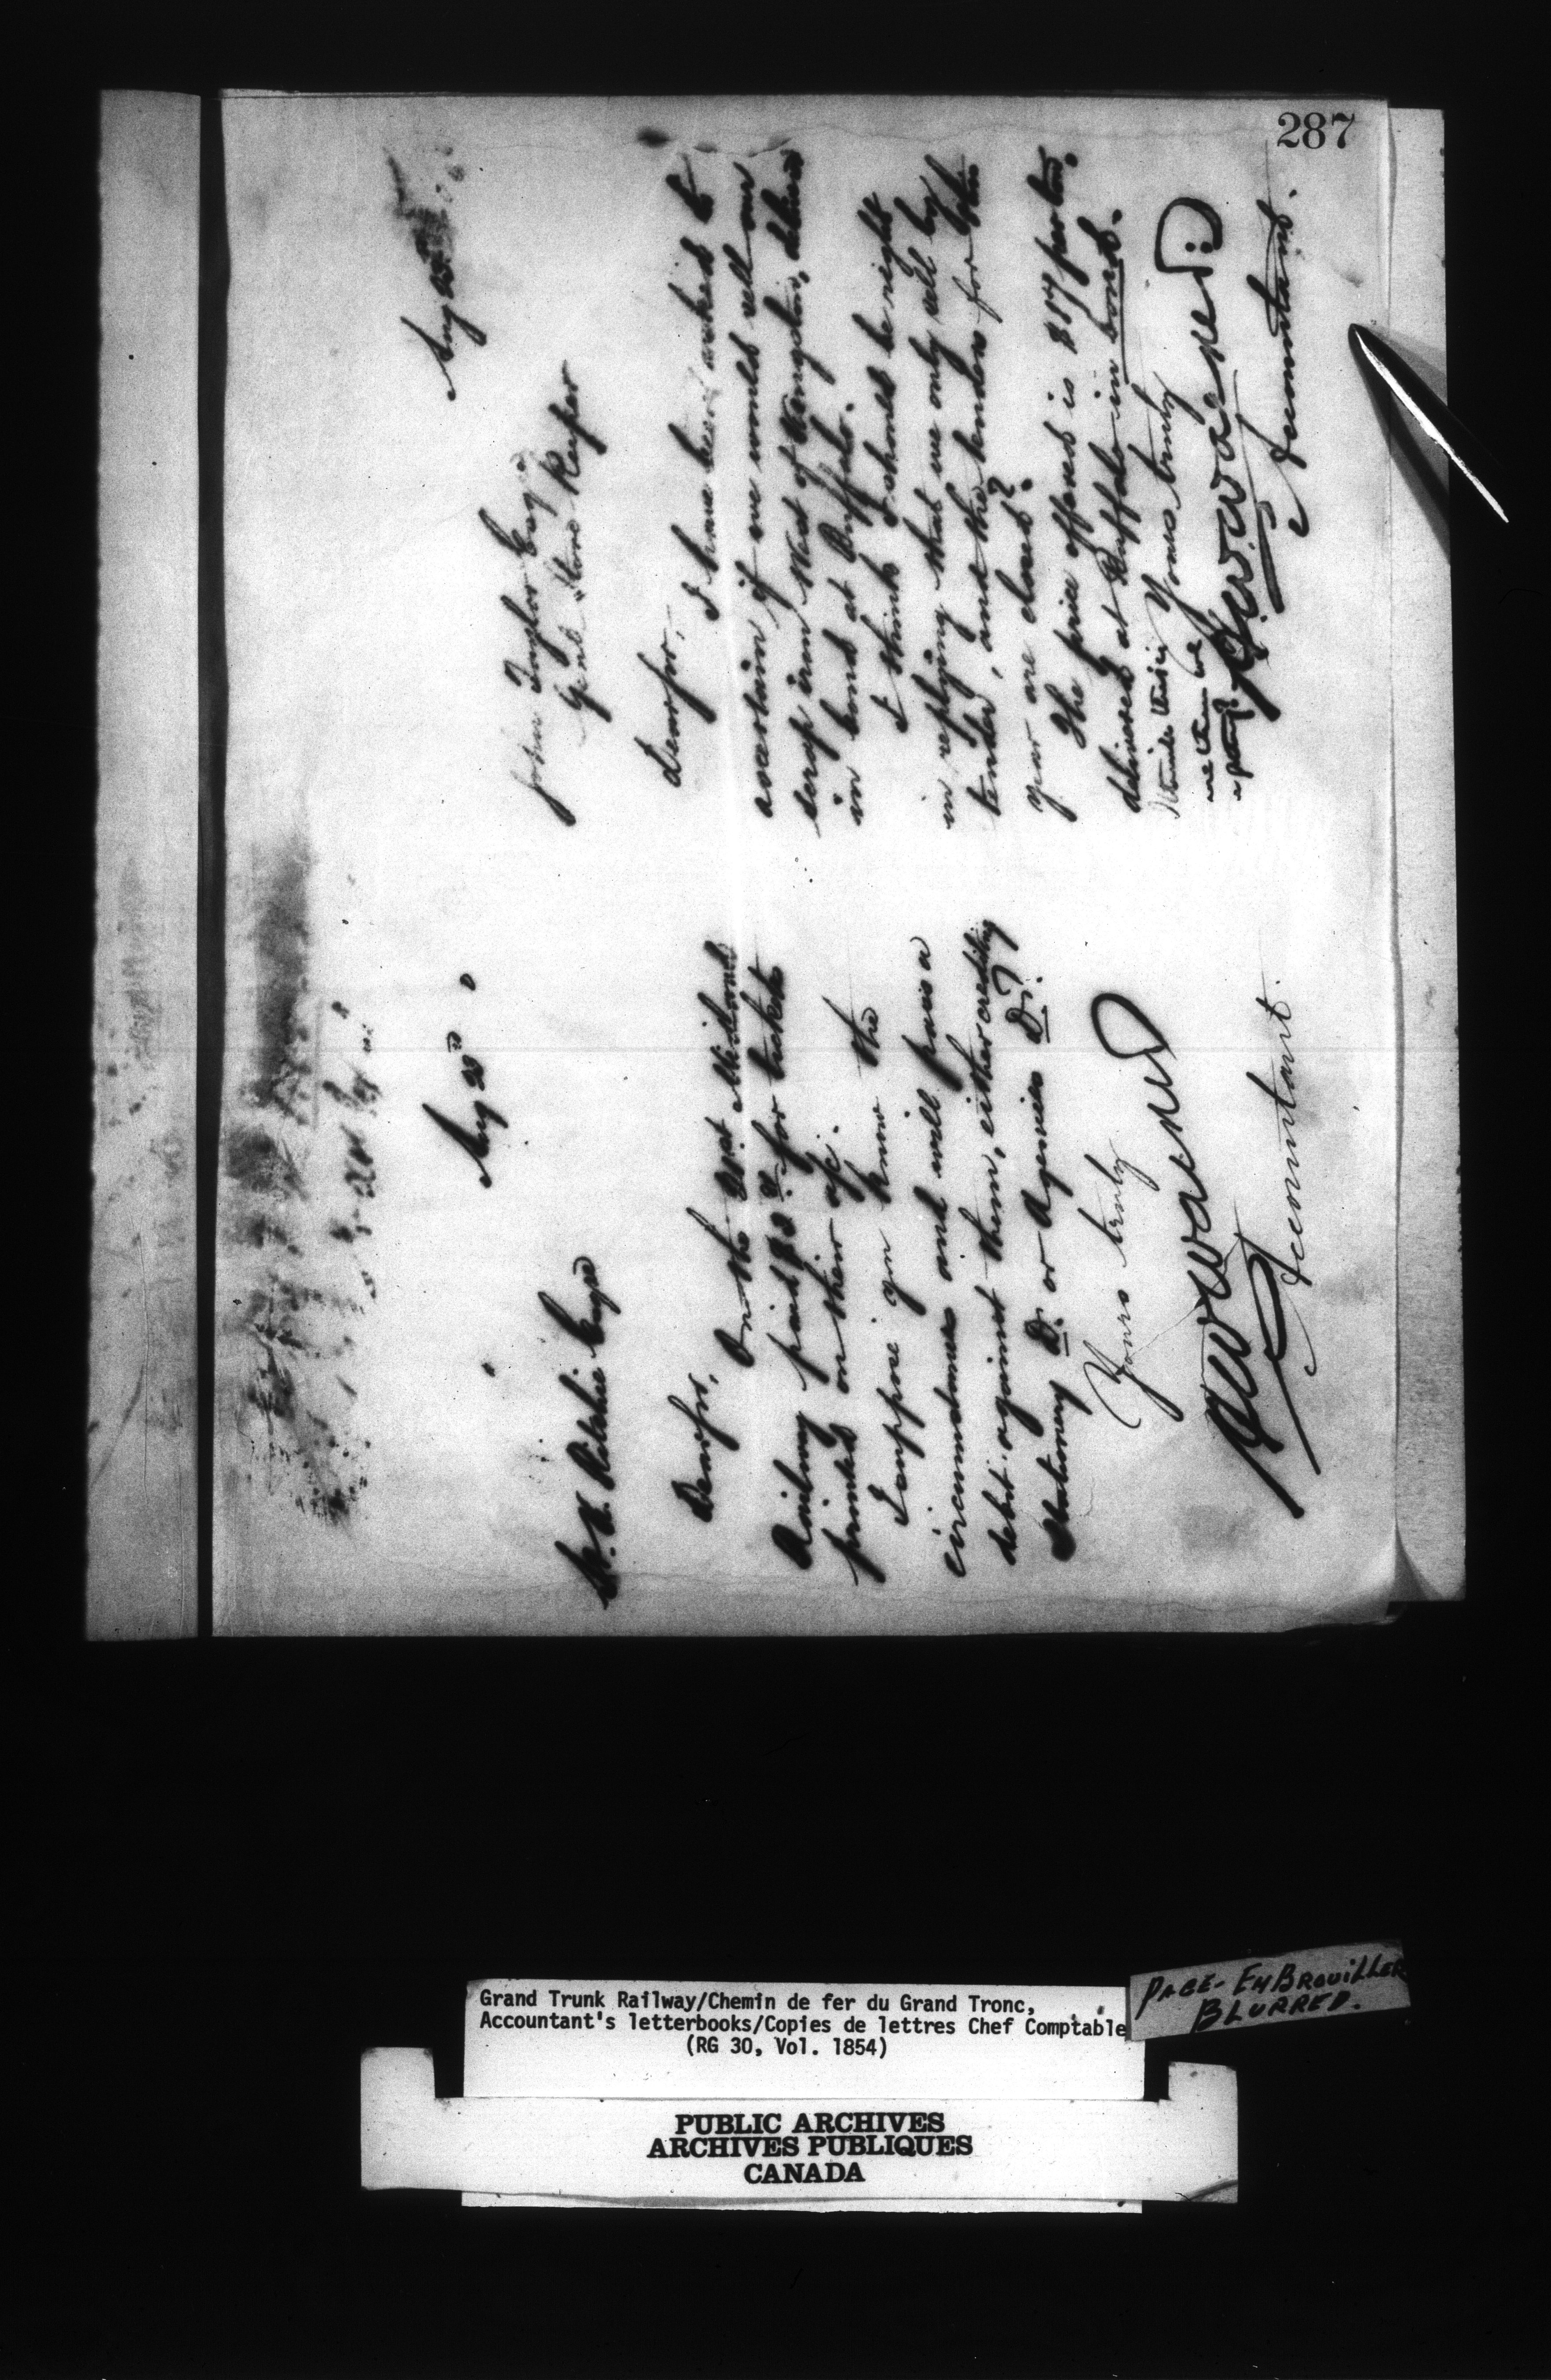 287
Aug 23rd
Ritchie Esqr
Dear Sir,
On the 21st Midland
Railway paid for tickets
printed on their a/c.
I suppose you know the
circumstances and will pass a
debit against them, either crediting
Stationery Dr. or Agencies Dr.?
Yours truly
Accountant
Aug 23
John Taylor Esq
Genl Store Keeper
Dear Sir,
I have been asked to
ascertain if we would sell our
scrap iron West of Kingston, delivd
in bond at Buffalo.
I think I should be right
in replying that we only sell by
tender, and the tenders for this
year are closed?
The price offered is $17 per ton.
delivered at Buffalo in bond.
Yours truly
Accountant.
Grand Trunk Railway/Chemin de fer du Grand Tronc,
Accountant's letterbooks/Copies de lettres Chef Comptable
(RG 30, Vol. 1854)
PAGE-EMBROUILLER
BLURRED.
PUBLIC ARCHIVES
ARCHIVES PUBLIQUES
CANADA